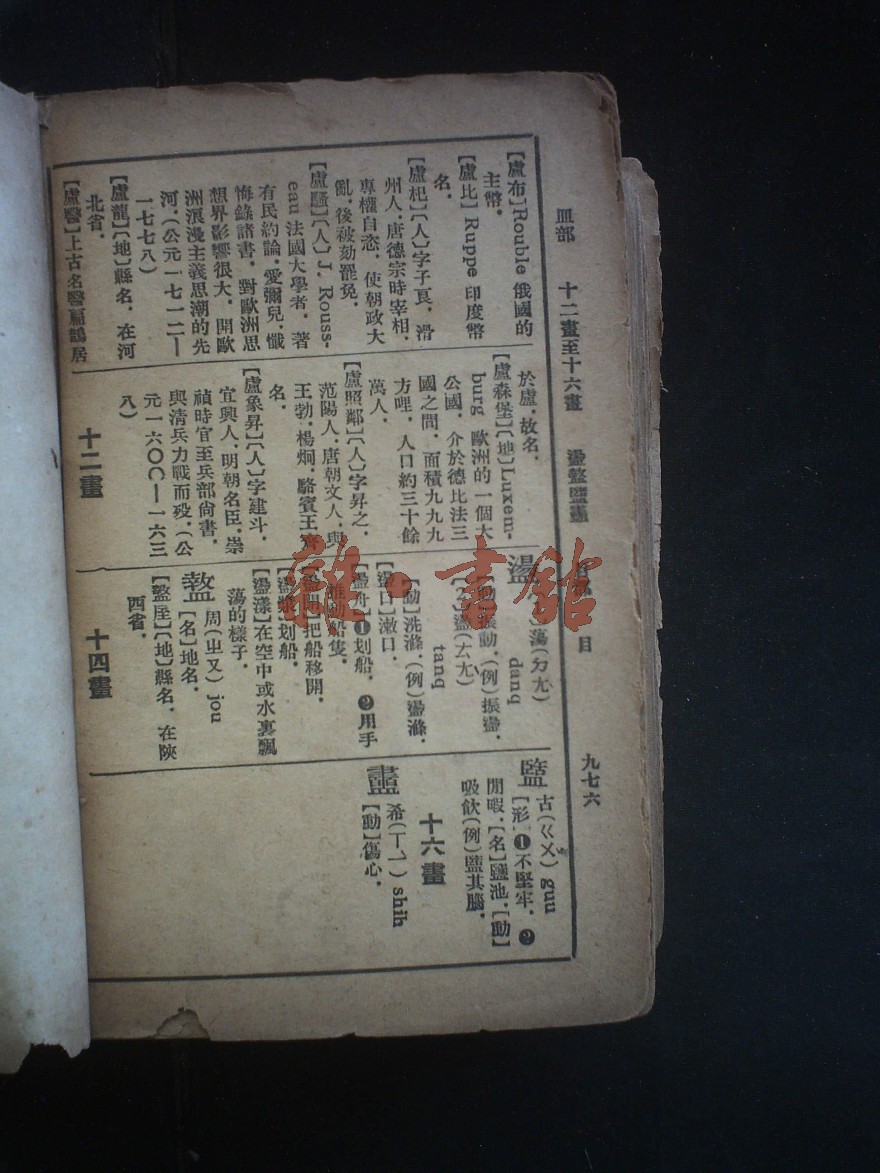 皿部　十二畫至十六畫　盪盩盬衋
目
九七六
【盧布】Rouble 俄國的
主幣．
【盧比】Ruppe 印度幣
名．
【盧杞】〔人〕字子良，滑
州人．唐德宗時宰相．
專權自恣，使朝政大
亂．後被劾罷免．
【盧騷】〔人〕J. Rouss-
eau 法國大學者，著
有民約論．愛彌兒．懺
悔錄諸書．對歐洲思
想界影響很大，開歐
洲浪漫主義思潮的先
河．（公元一七一二—
一七七八）
【盧龍】〔地〕縣名，在河
北省．
【盧醫】上古名醫扁鵲居
於盧．故名．
【盧森堡】〔地〕Luxem-
burg 歐洲的一個大
公國．介於德比法三
國之間，面積九九九
方哩，人口約三十餘
萬人．
【盧照鄰】〔人〕字昇之，
范陽人．唐朝文人．與
王勃．楊炯．駱賓王齊
名．
【盧象昇】〔人〕字建斗，
宜興人．明朝名臣．崇
禎時官至兵部尙書，
與清兵力戰而歿．（公
元一六〇〇—一六三
八）
十二畫
盪
蕩（ㄉㄤ）
danq
【動】振動．（例）振盪．
盪（ㄊㄤ）
tanq
【動】洗滌．（例）盪滌．
【盪口】漱口．
【盪舟】❶划船．❷用手
推動船隻．
把船移開．
【盪槳】划船．
【盪漾】在空中或水裏飄
蕩的樣子．
盩 周（ㄓㄡ）jou
【名】地名．
【盩厔】〔地〕縣名，在陝
西省．
十四畫
盬 古（ㄍㄨ）guu
【形】❶不堅牢．❷
閒暇．【名】鹽池．【動】
吸飲（例）盬其腦．
十六畫
衋 希（ㄒㄧ）shih
【動】傷心．
雜·書館